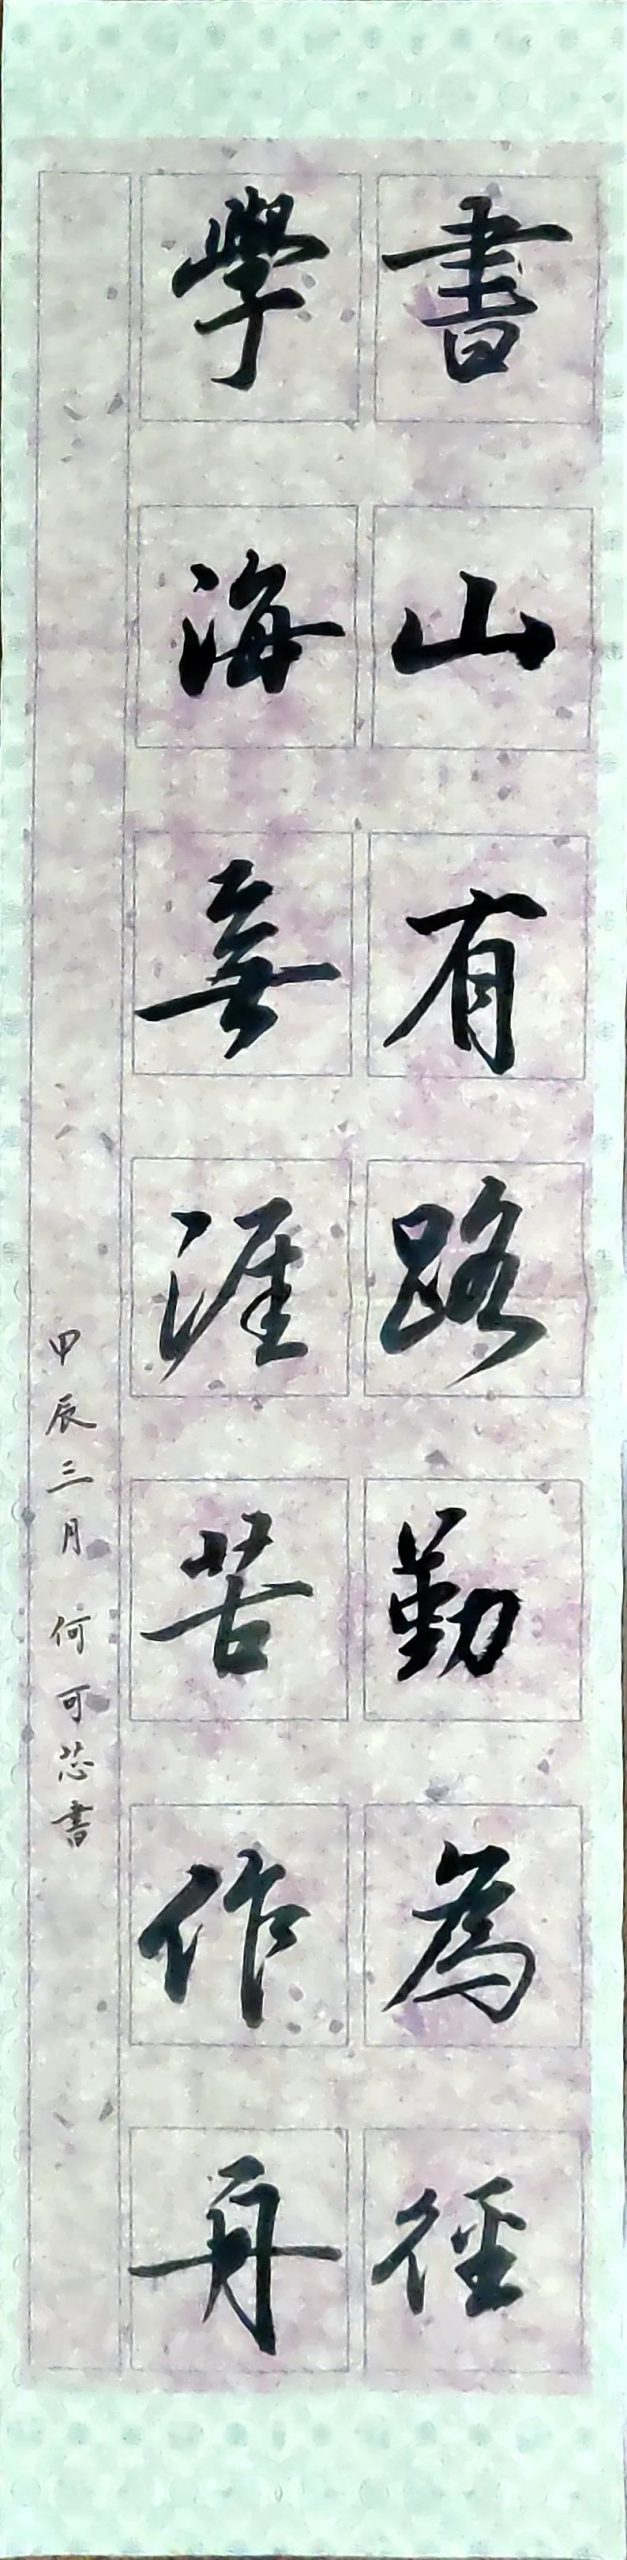 書山有路勤為徑
學海無涯苦作舟
甲辰三月 何可芯書